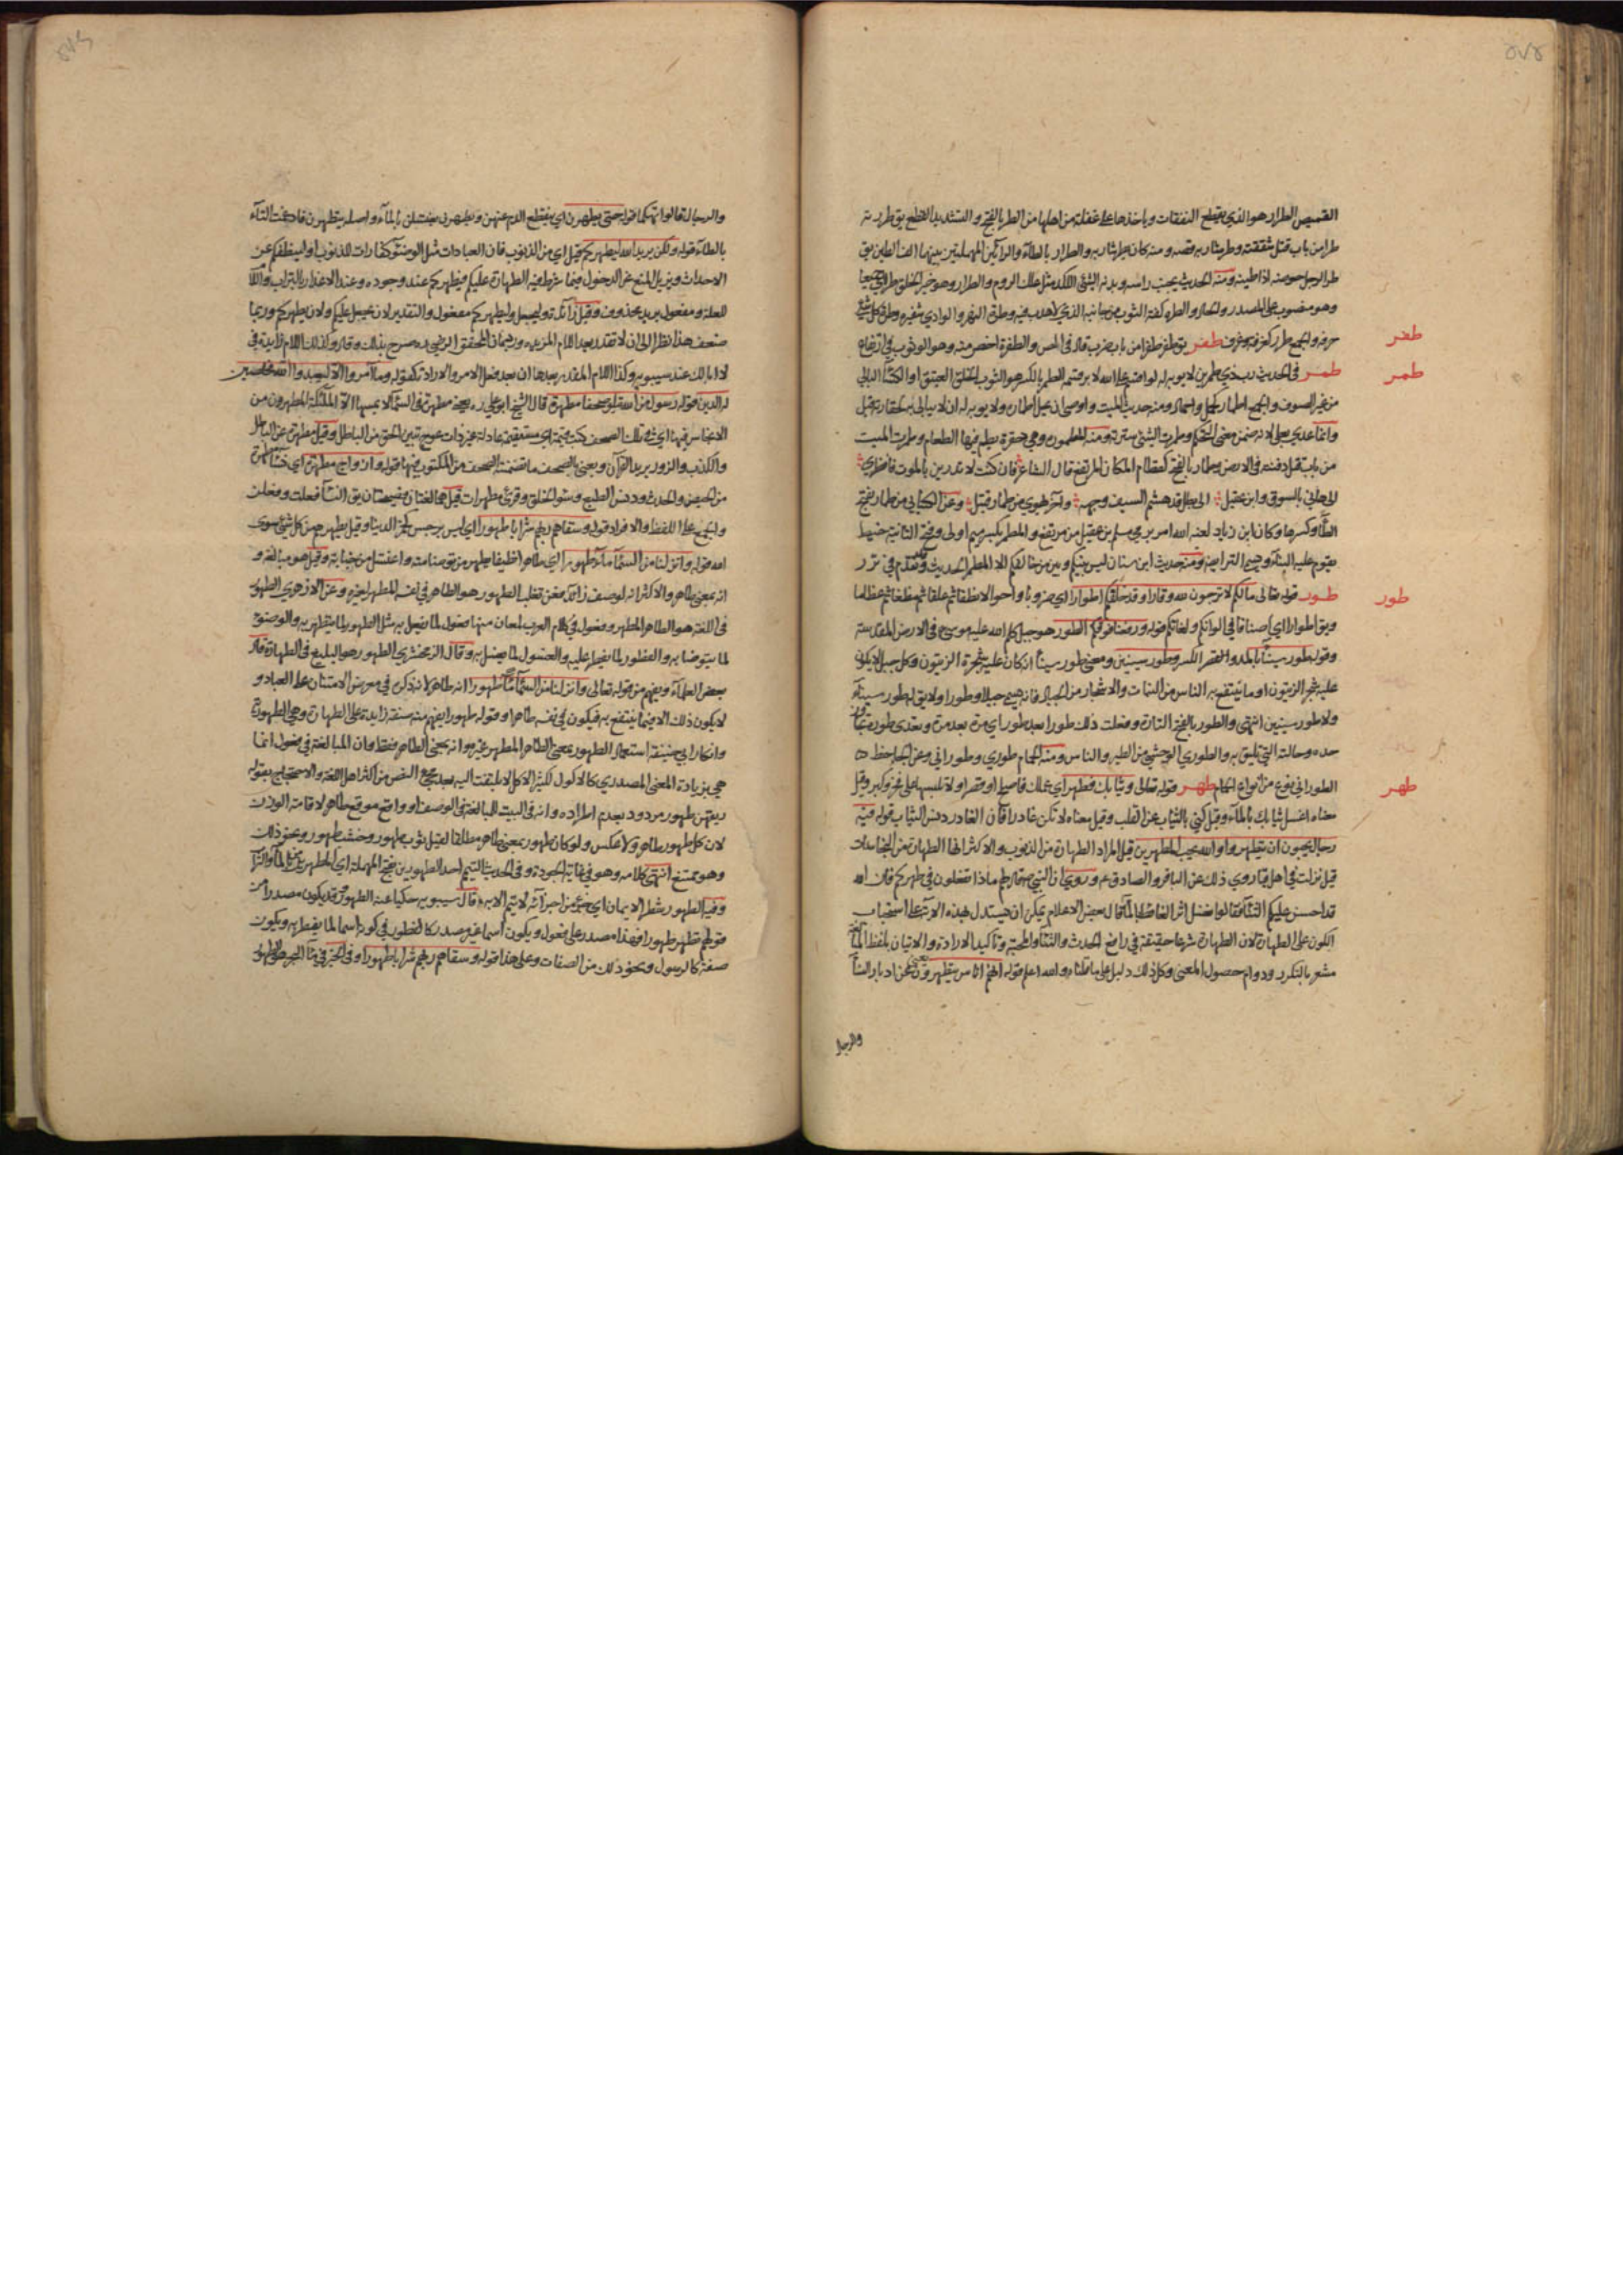 القميص الطرار هو الذي يقطع النفقات وياخذها على غفلة من اهلها من الطر بالفتح والتشديد القطع يق طررته
طرا من باب قتل شققته ومنه كان يطر شاربه والطرار بالطاء والرائين المهملتين بينهما الف الطين يق
طر الرجل حوضه اذا طينه ومنه الحديث يجب راسه وبدنه الشئ اللكد مثل علك الروم والطرار وهو خير الخلق طرا اي جميعا
وهو منصوب على المصدر او الحال وطرة الثوب من جانبه الذي لا هدب فيه وطرة النهر والوادي شفيره وطرة كل شئ
حرفه والجمع طرر كغرفة وغرف طفر يق طفر طفرا من باب ضرب قال في المص والطفرة اخص منه وهو الوثوب في ارتفاع
طفر
طمر في الحديث رب ذي طمرين لا يوبه له لو اقسم على الله لابر قسمه الطمر بالكسر هو الثوب الخلق العتيق او الكساء البالي
طمر
من غير الصوف والجمع اطمار كحمل واحمال ومنه حديث الميت واوصى ان يحل اطماره ولا يوبه له ان لا يبالي به لحقارته قيل
وانما عدي بعلى لانه ضمن معنى التحكم وطمرت الشئ سترته ومنه المطمورة وهي حفرة يطم فيها الطعام وطمرت الميت
من باب قتل دفنته في الارض وطمار بالفتح كقطام المكان المرتفع قال الشاعر فان كنت لا تدرين بالموت فانظري
الى هاني بالسوق وابن عقيل الى بطل قد هشم السيف وجهه وآخر يهوي من طمار قتيل وعن الكسائي من طمار بفتح
الطاء وكسرها وكان ابن زياد لعنه الله امر برمي مسلم بن عقيل من مرتفع والمطمر بكسر ميم اولى وفتح الثانية خيط
يقوم عليه البناء ويسمى التر ايضا ومنه حديث ابن سنان ليس بينكم وبين من خالفكم الا المطمر الحديث وقد تقدم في ترر
طور قوله تعالى ما لكم لا ترجون لله وقارا وقد خلقكم اطوارا اي ضروبا واحوالا نطفا ثم علقا ثم مضغا ثم عظاما
طور
ويق اطوارا اي اصنافا في الوانكم ولغاتكم قوله ورفعنا فوقكم الطور هو جبل كلم الله عليه موسى في الارض المقدسة
وقوله طور سيناء بالمد والقصر والكسر وطور سينين ومعنى طور سيناء انه كان عليه شجرة الزيتون وكل جبل لا يكون
عليه شجر الزيتون او ما ينتفع به الناس من النبات والاشجار من الجبال فانه يسمى جبلا وطورا ولا يق له طور سيناء
ولا طور سينين انتهى والطور بالفتح التارة وفعلت ذلك طورا بعد طور اي مرة بعد مرة وتعدى طوره تجاوز
حده وحالته التي تليق به والطوري الوحشي من الطير والناس ومنه الحمام طوري وطوراني وعن الجاحظ ه
الطوراني نوع من انواع الحمام طهر قوله تعالى وثيابك فطهر اي عملك فاصلح او قصر او لا تلبسها على فخر وكبر وقيل
طهر
معناه اغسل ثيابك بالماء وقيل كني بالثياب عن القلب وقيل معناه لا تكن غادرا فان الغادر دنس الثياب قوله فيه
رجال يحبون ان يتطهروا والله يحب المطهرين قيل المراد الطهارة من الذنوب والاكثر انها الطهارة من النجاسات
قيل نزلت في اهل قبا روي ذلك عن الباقر والصادق ع وروي ان النبي ص قال لهم ماذا تفعلون في طهركم فان الله
قد احسن عليكم الثناء فقالوا نغسل اثر الغائط بالماء قال بعض الاعلام يمكن ان يستدل بهذه الاية على استحباب
الكون على الطهارة لان الطهارة شرعا حقيقة في رافع الحدث والثناء والمحبة وتاكيد الارادة والاتيان بلفظ المبالغة
مشعر بالتكرر ودوام حصول المعنى وكل ذلك دليل على ما قلناه والله اعلم قوله انهم اناس يتطهرون يعنون عن ادبار النساء
والرجال
والرجال قالوا تهكما قوله حتى يطهرن اي ينقطع الدم عنهن ويطهرن يغتسلن بالماء واصله يتطهرن فادغمت التاء
بالطاء قوله ولكن يريد الله ليطهركم قيل اي من الذنوب فان العبادات مثل الوضوء كفارات للذنوب او لينظفكم عن
الاحداث ويزيل المنع عن الدخول فيما شرط فيه الطهارة عليكم فيطهركم عند وجوده وعند الاعذار بالتراب واللام
للعلة ومفعول يريد محذوف وقيل زائدة وليجعل وليطهركم مفعول والتقدير لان يجعل عليكم ولان يطهركم وربما
ضعف هذا نظرا الى ان لا تقدر بعد اللام المزيدة ورد بان المحقق الرضي ره صرح بذلك وقال وكذلك اللام زايدة في
لا ابا لك عند سيبويه وكذا اللام المقدر بعدها ان بعد فعل الامر والارادة كقوله وما امروا الا ليعبدوا الله مخلصين
له الدين قوله رسول من الله يتلو صحفا مطهرة قال الشيخ ابو علي ره يعني مطهرة في السماء لا يمسها الا الملئكة المطهرون من
الانجاس فيها اي في تلك الصحف كتب قيمة اي مستقيمة عادلة غير ذات عوج تبين الحق من الباطل وقيل مطهرة عن الباطل
والكذب والزور يريد القرآن ويعني بالصحف ما تضمنته الصحف من المكتوب فيها قوله وازواج مطهرة اي خلقا مطهرة
من الحيض والحدث ودنس الطبع وسوء الخلق وقرئ مطهرات قيل هما لغتان فصيحتان يق النساء فعلت وفعلن
والجمع على اللفظ والافراد قوله وسقاهم ربهم شرابا طهورا اي ليس برجس كخمر الدنيا وقيل يطهرهم من كل شئ سوى
الله قوله وانزلنا من السماء ماء طهورا اي طاهرا نظيفا يطهر من توضا منه واغتسل من جنابة وقيل هو مبالغة و
انه بمعنى طاهر والاكثر انه لوصف زائد فعن ثعلب الطهور هو الطاهر في نفسه المطهر لغيره وعن الازهري الطهور
في اللغة هو الطاهر المطهر وفعول في كلام العرب لمعان منها فعول لما يفعل به مثل الطهور لما يتطهر به والوضوء
لما يتوضا به والفطور لما يفطر عليه والغسول لما يغسل به وقال الزمخشري الطهور هو البليغ في الطهارة قال
بعض العلماء ويفهم من قوله تعالى وانزلنا من السماء ماء طهورا انه طاهر لانه ذكره في معرض الامتنان على العباد و
لا يكون ذلك الا فيما ينتفع به فيكون في نفسه طاهرا وقوله طهورا يفهم منه صفة زايدة على الطهارة وهي الطهورية
وانكار ابي حنيفة استعمال الطهور بمعنى الطاهر المطهر غيره وانه بمعنى الطاهر فقط وان المبالغة في فعول انما
هي بزيادة المعنى المصدري كالاكول لكثير الاكل لا يلتفت اليه بعد مجئ النص من اكثر اهل اللغة والاحتجاج بقوله
ريقهن طهور مردود بعدم اطراده وانه في البيت للمبالغة في الوصف او واقع موقع طاهر لاقامة الوزن
لان كل طهور طاهر ولا عكس ولو كان طهور بمعنى طاهر مطلقا لقيل ثوب طهور وخشب طهور ونحو ذلك
وهو ممتنع انتهى كلامه وهو في غاية الجودة وفي الحديث التيمم احد الطهورين بفتح المهملة اي المطهرين يعني الماء والتراب
وفيه الطهور شطر الايمان اي جزء من اجزائه لا يتم الا به قال سيبويه حكيا عنه الطهور قد يكون مصدرا من
قولهم تطهر طهورا فهذا مصدر على فعول ويكون اسما غير مصدر كالفطور في كونه اسما لما يفطر به ويكون
صفة كالرسول ونحو ذلك من الصفات وعلى هذا قوله وسقاهم ربهم شرابا طهورا وفي الخبر في ماء البحر هو الطهور